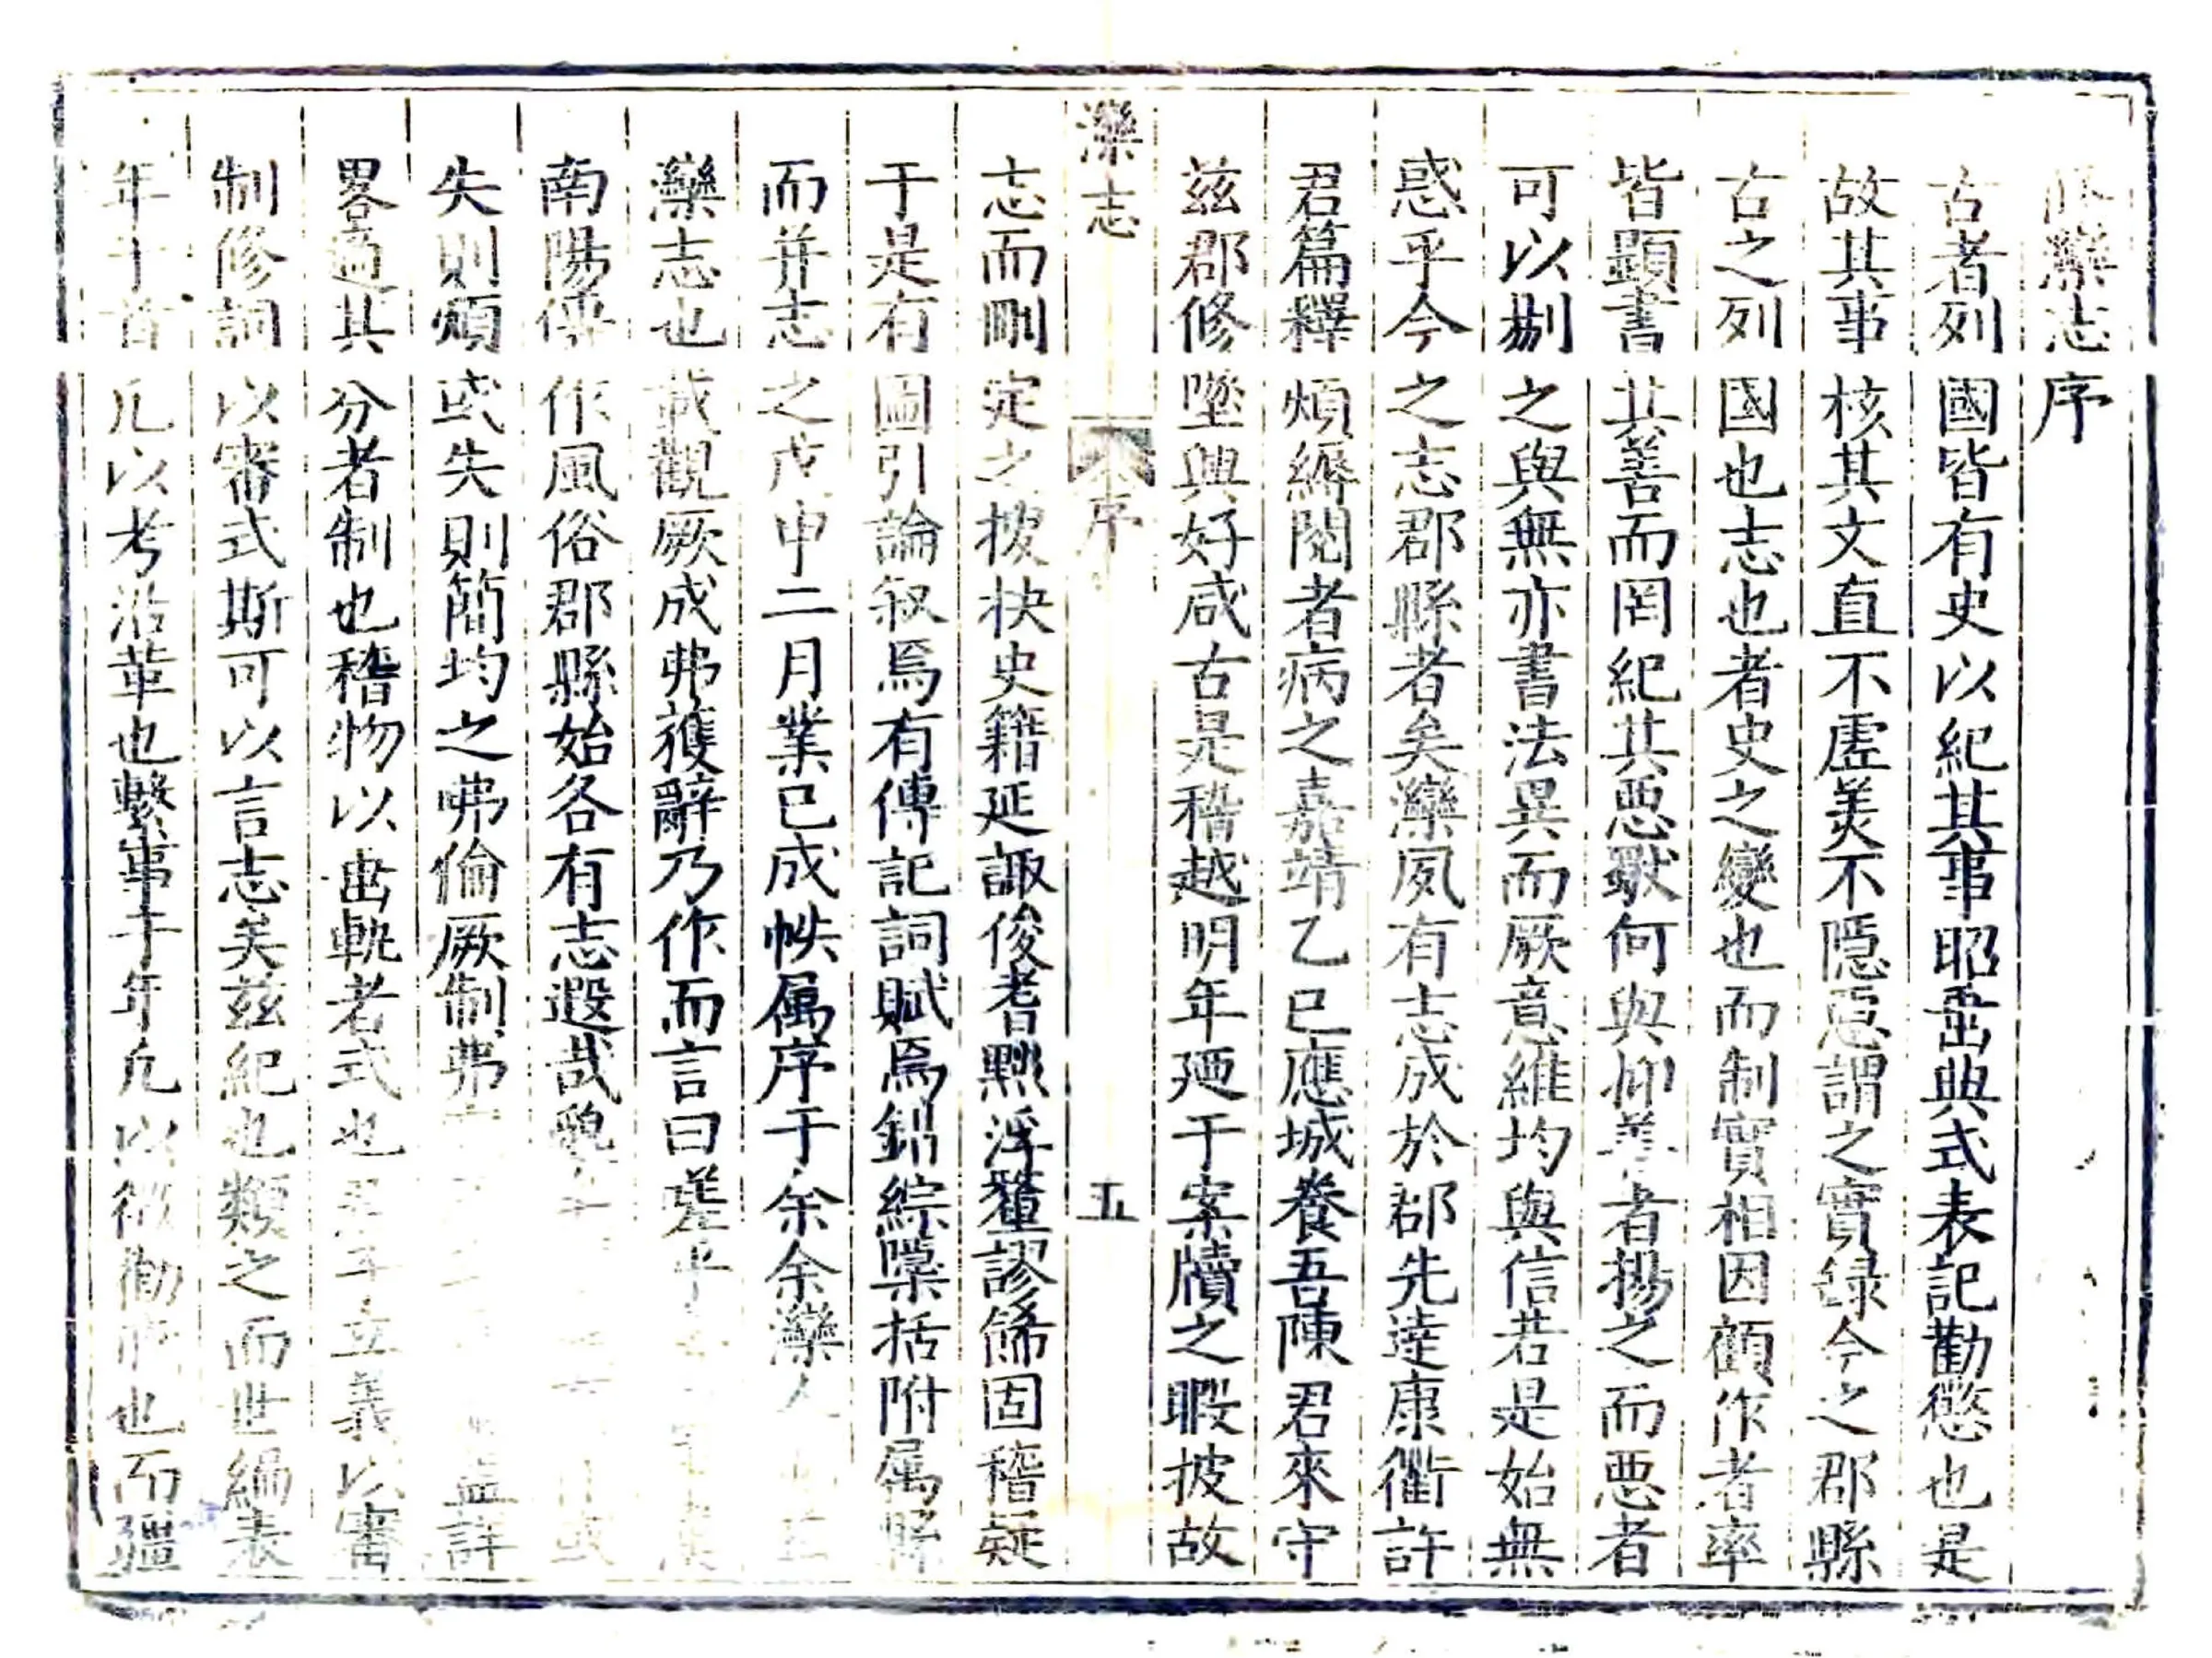 灤志序
古者列國皆有史以紀其事昭𠁅典式表記勸懲也是
故其事核其文直不虛羙不隱惡謂之實録今之郡縣
古之列國也志也者史之變也而制實相因顧作者率
皆顯書其善而罔紀其悪歟何與抑善者揚之而悪者
可以剗之與無亦書法異而厥意維均與信若是始無
惑乎今之志郡縣者矣灤夙有志成於郡先逹康衢許
君篇釋煩縟閱者病之嘉靖乙巳應城養吾陳君來守
兹郡修墜興好咸古是稽越明年廼于案牘之暇披故
灤志
序
五
志而刪定之搜抉史籍延諏俊耆黜浮釐謬鯑固稽疑
于是有圖引論叙焉有傳記詞賦焉錯綜檃括附属縣
而并志之戊申二月業已成帙属序于余余灤人
灤志也載觀厥成弗獲辭乃作而言曰嗟乎
南陽傳作風俗郡縣始各有志遐哉
失則煩或失則簡均之咈倫厥制弗 益詳
畧適其分者制也稽物以𠚖軌者式也 立義以審
制修詞以審式斯可以言志矣兹紀也類之而世編表
年于首凡以考沿革也繫事于年凡以 勸 也而疆